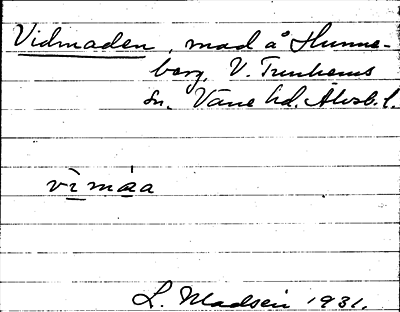 Vidmaden, mad å Hunne-
berg, V. Tunhems
sn. Väne hd. Älvsb. l.
vì máa
L. Madsen 1931.